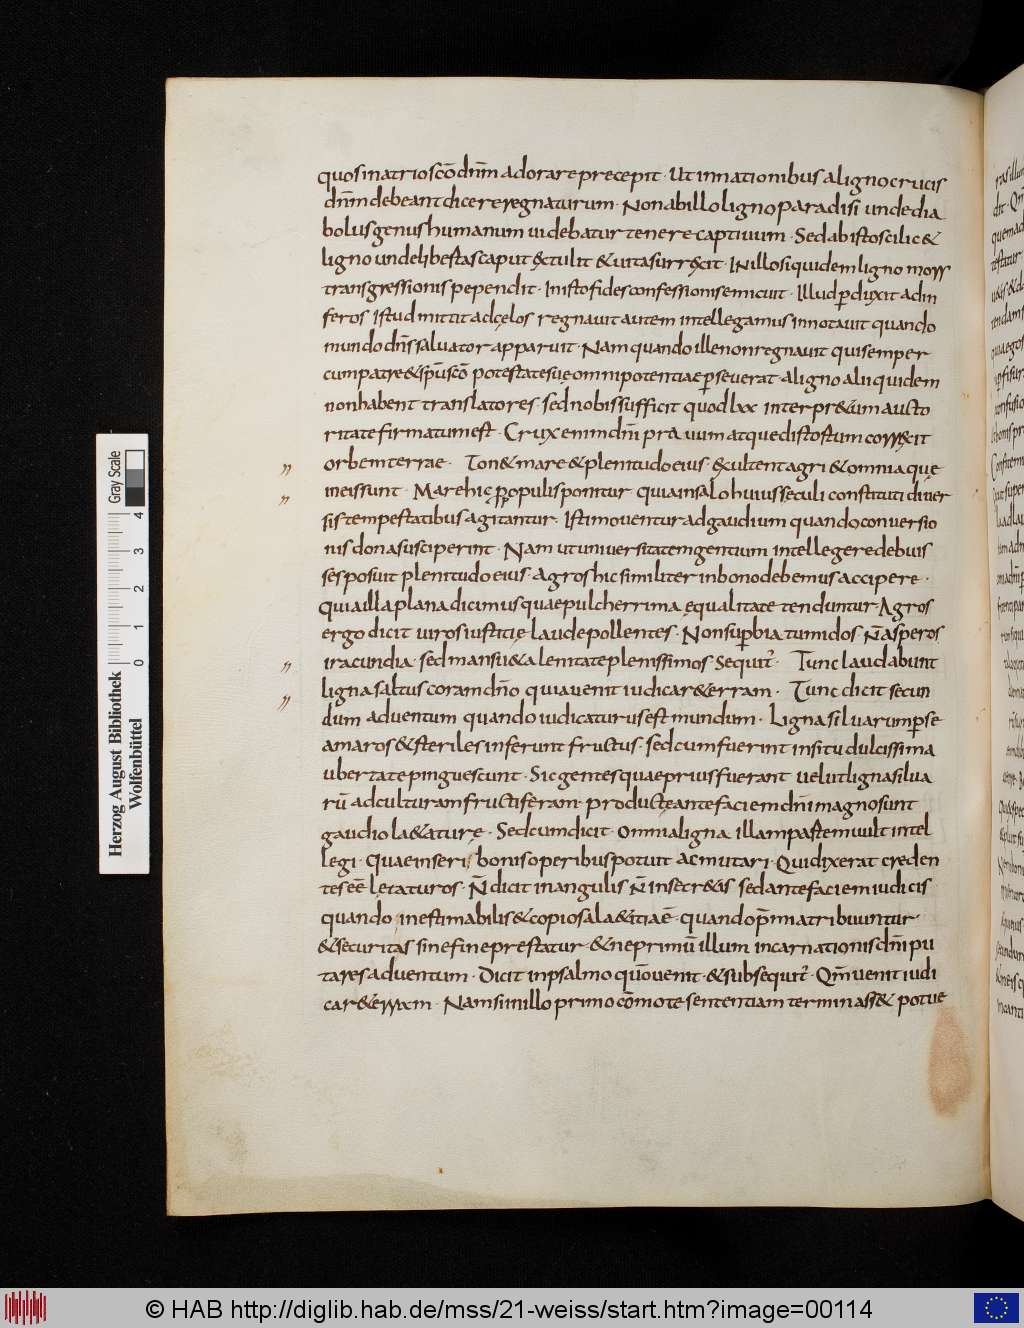 quos in atrio scō dn̄m adorare precepit · Ut in nationibus a ligno crucis
dn̄m debeant dicere regnaturum · Non ab illo ligno paradisi unde dia
bolus genus humanum uidebatur tenere captiuum · Sed ab isto scilic&
ligno unde libestas caput extulit & uita surrexit · In illo siquidem ligno mors
transgressionis pependit · In isto fides confessionis emicuit · Illud ꝑduxit ad in
feros Istud mittit ad cęlos regnauit autem intellegamus innotauit quando
mundo dn̄s saluator apparuit · Nam quando ille non regnauit qui semper
cum patre & sp̄u scō potestate suę omnipotentiae ꝑseuerat · a ligno alii quidem
non habent translatores · sed nobis sufficit quod lxx interpr&um aucto
ritate firmatum est · Crux enim dn̄i prauum atque distostum correxit
orbem terrae · Ton& mare & plenitudo eius · exultent agri & omnia quę
in eis sunt · Mare hic ꝓ populis ponitur quia in salo huius sęculi constituti diuer
sis tempestatibus agitantur · Isti mouentur ad gaudium quando conuersio
nis dona susciperint · Nam ut uniuersitatem gentium intellegere debuis
ses posuit plenitudo eius · agros hic similiter in bono debemus accipere ·
Quia illa plana dicimus quae pulcherrima ęqualitate tenduntur · Agros
ergo dicit uiros iustitię laude pollentes · Non suꝑbia tumidos · n̄ asperos
iracundia · sed mansu&a lenitate plenissimos · Sequit᷒ · Tunc laudabunt
ligna saltus coram dn̄o quia uenit iudicar& erram · Tunc dicit secun
dum aduentum quando iudicaturus est mundum · Ligna siluarum ꝑ se
amaros & steriles inferunt fructus · sed cum fuerint insitu dulcissima
ubertate pinguescunt · Sic gentes quae prius fuerant uelut ligna silua
rū ad culturam fructiferam · productę ante faciem dn̄i magno sunt
gaudio la&aturę · Sed cum dicit · omnia ligna illam pastem uult intel
legi · Quae inseri bonis operibus potuit ac mutari · Qui dixerat creden
tes eē letaturos · N̄ dicit in angulis n̄ in secr&is sed ante faciem iudicis
quando inestimabilis & copiosa la&itia ē · quando p̄mia tribuuntur ·
& securitas sine fine prestatur · & ne primū illum incarnationis dn̄i pu
tares aduentum · Dicit in psalmo quō uenit · & subsequit᷒ · Qm̄ uenit iudi
car& erram · Nam si in illo primo cōmote sententiam terminass& potue
Herzog August Bibliothek
Wolfenbüttel
Gray Scale
0 1 2 3 4
© HAB http://diglib.hab.de/mss/21-weiss/start.htm?image=00114